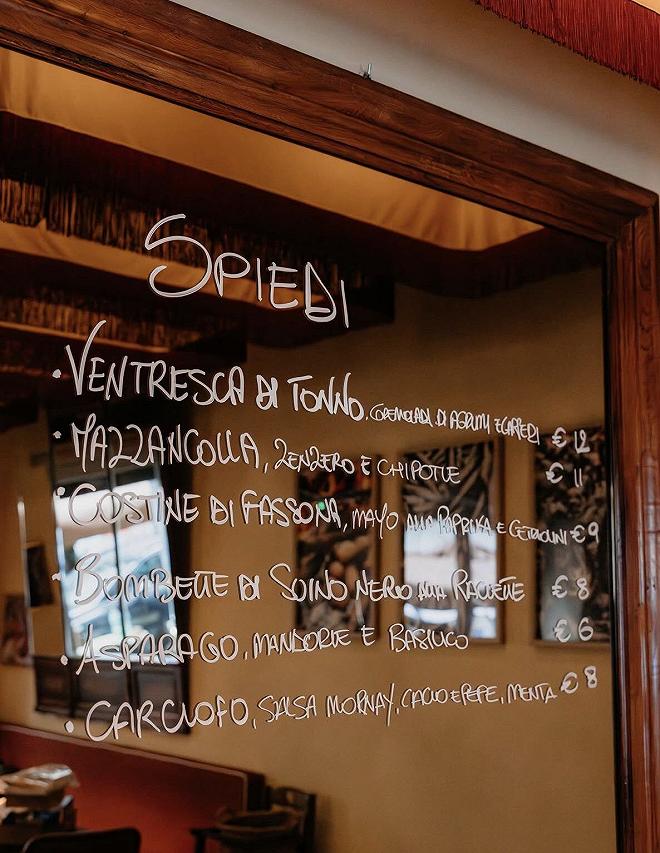 SPIEDI
• VENTRESCA DI TONNO, GREMOLADA DI AGRUMI E CAPPERI €12
• MAZZANCOLLA, ZENZERO E CHIPOTLE €11
• COSTINE DI FASSONA, MAYO ALLA PAPRIKA E CETRIOLINI €9
• BOMBETTE DI SUINO NERO ALLA RACLETTE €8
• ASPARAGO, MANDORLE E BASILICO €6
• CARCIOFO, SALSA MORNAY, CACIO E PEPE, MENTA €8